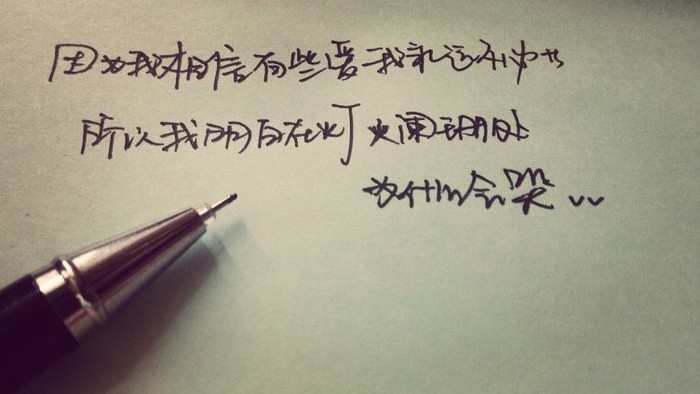 因为我相信有些爱我永远不懂
所以我明白在灯火阑珊处
为什么会哭